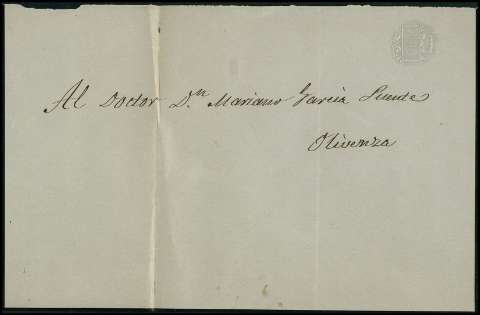 Al Doctor D.n Mariano Garcia
Olivenza